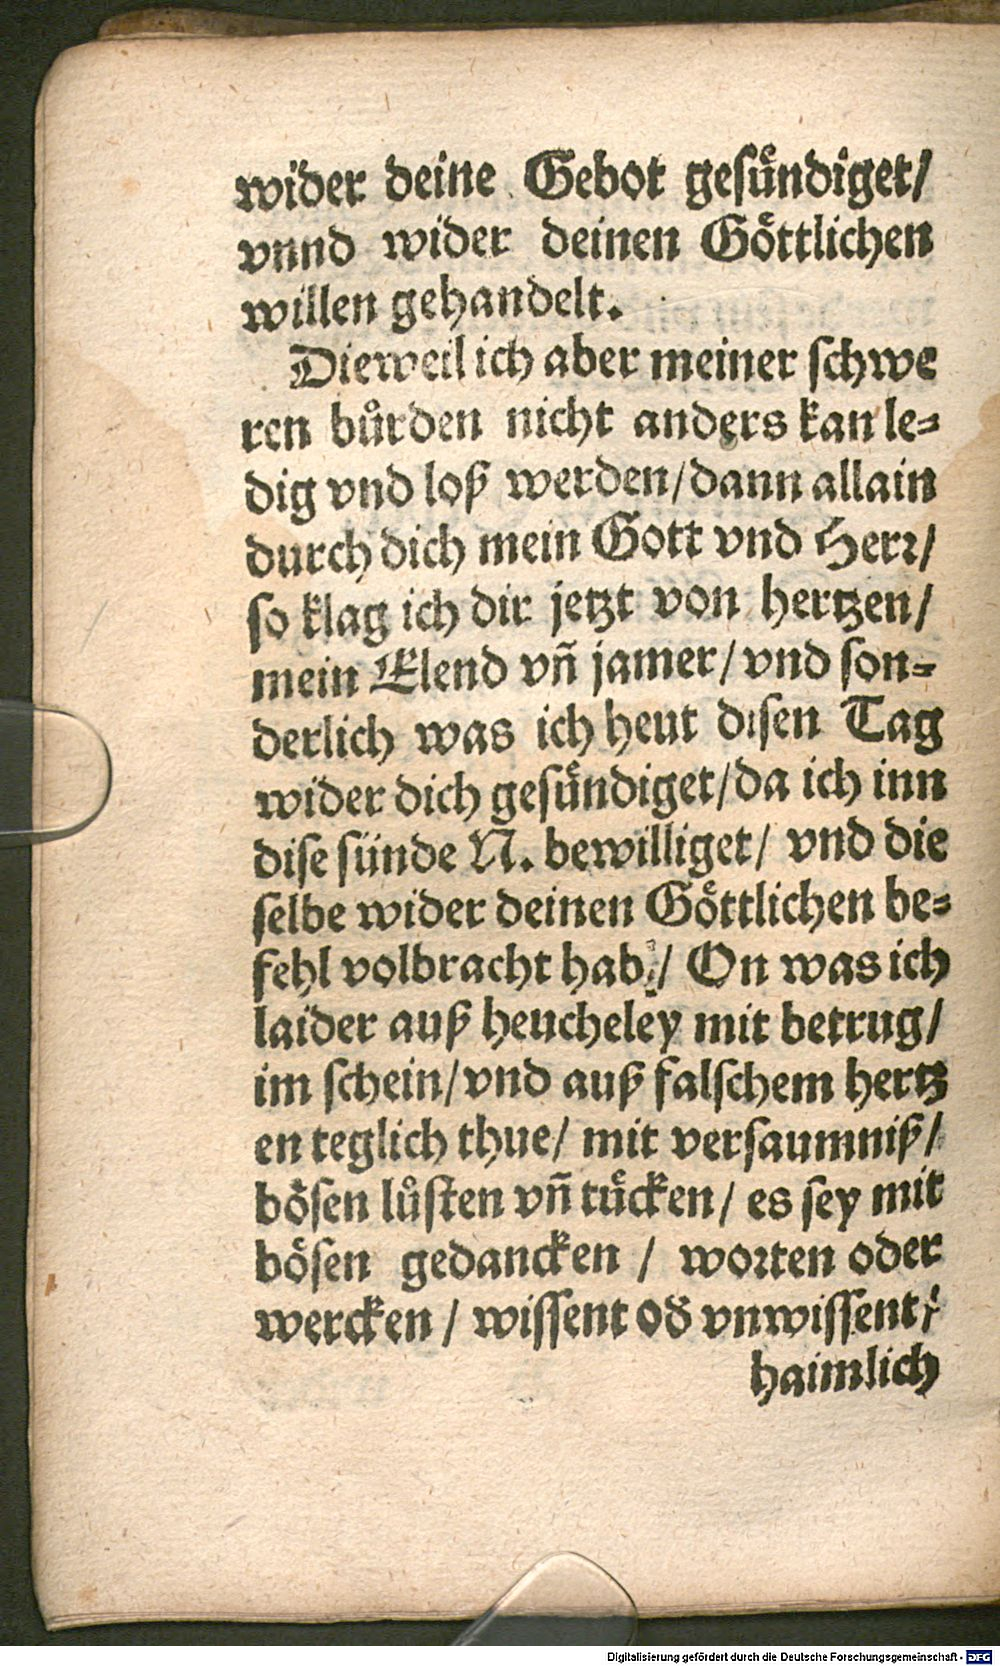 wider deine Gebot geſuͤndiget/
vnnd wider deinen Goͤttlichen
willen gehandelt.
Dieweil ich aber meiner ſchwe
ren buͤrden nicht anders kan le⸗
dig vnd loß werden/dann allain
durch dich mein Gott vnd Herꝛ/
ſo klag ich dir jetzt von hertzen/
mein Elend vñ jamer/vnd ſon⸗
derlich was ich heut diſen Tag
wider dich geſuͤndiget/da ich inn
diſe ſünde N. bewilliget/ vnd die
ſelbe wider deinen Goͤttlichen be⸗
fehl volbracht hab/ On was ich
laider auß heucheley mit betrug/
im ſchein/vnd auß falſchem hertz
en teglich thue/ mit verſaumniß/
boͤſen luͤſten vñ tuͤcken/ es ſey mit
boͤſen gedancken / woꝛten oder
wercken / wiſſent oď vnwiſſent/
haimlich
Digitalisierung gefördert durch die Deutsche Forschungsgemeinschaft - DFG